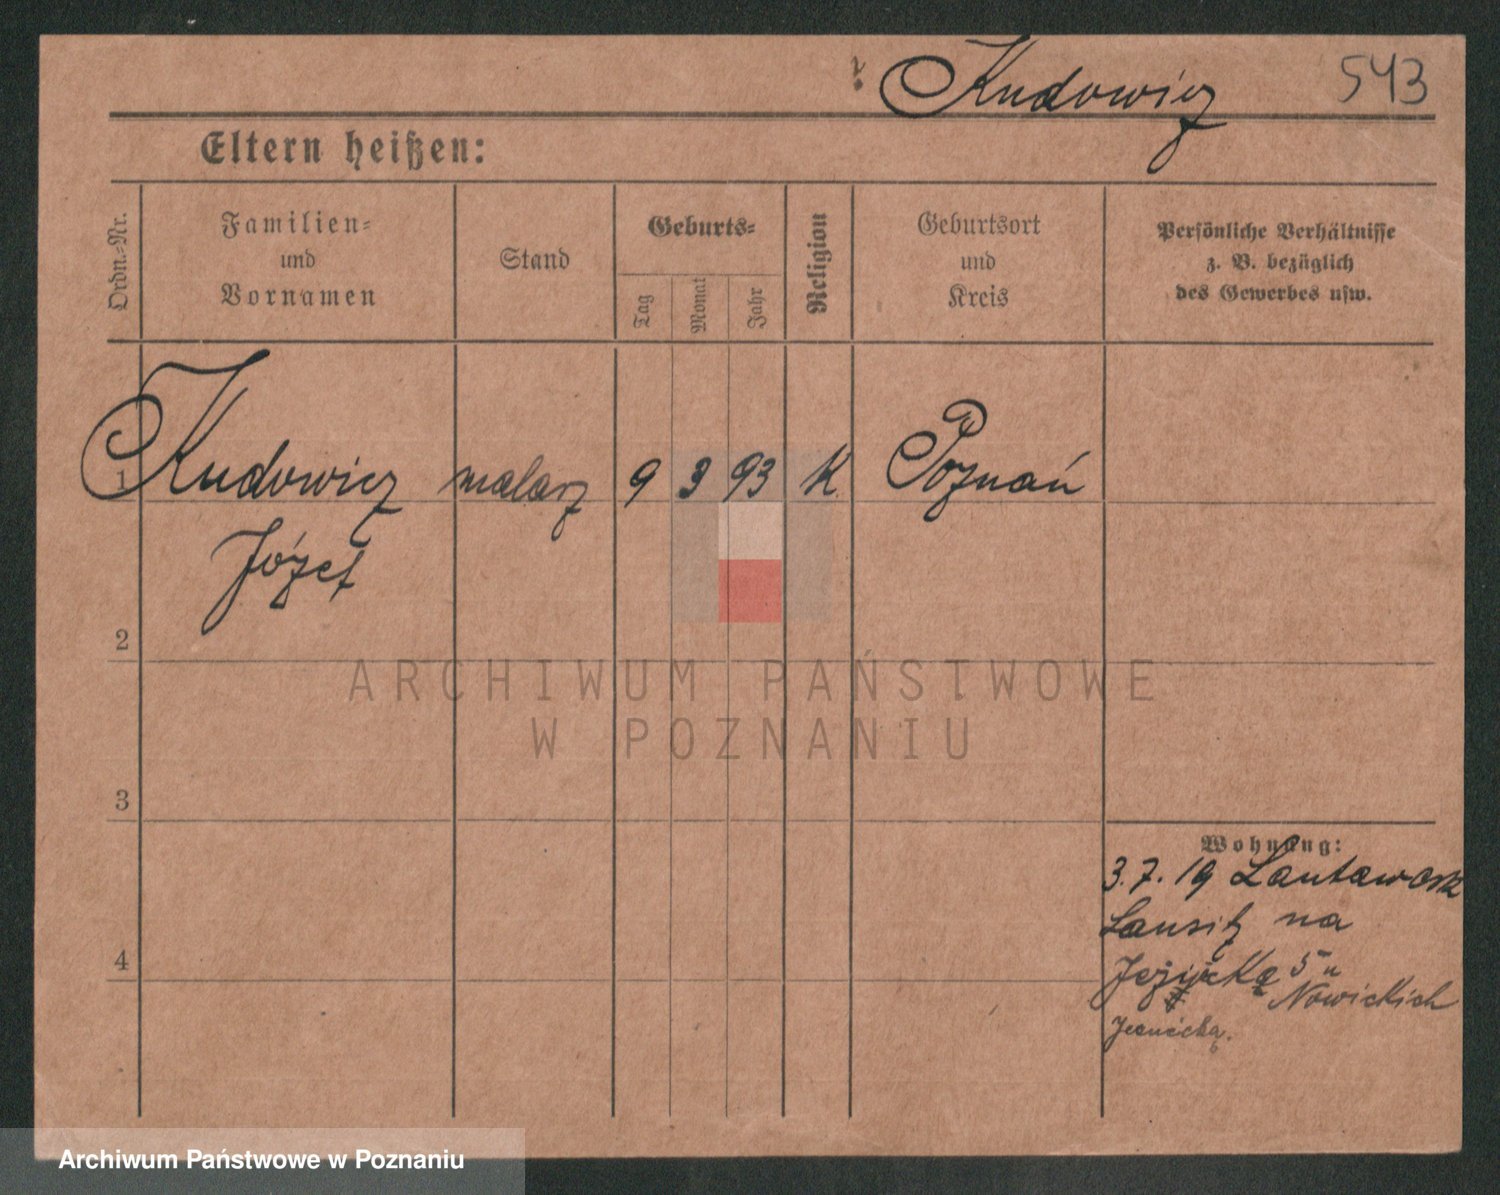 Kudowicz 543
Eltern heißen:
Ordn.-Nr.
Familien-
und
Vornamen
Stand
Geburts-
Tag
Monat
Jahr
Religion
Geburtsort
und
Kreis
Persönliche Verhältnisse
z. B. bezüglich
des Gewerbes usw.
1 Kudowicz malarz 9 3 93 K. Poznań
Józef
2
3
4
Wohnung:
3.7.19 Lautawerk
Lausitz na
5 u
Nowickich
ARCHIWUM PAŃSTWOWE
W POZNANIU
Archiwum Państwowe w Poznaniu